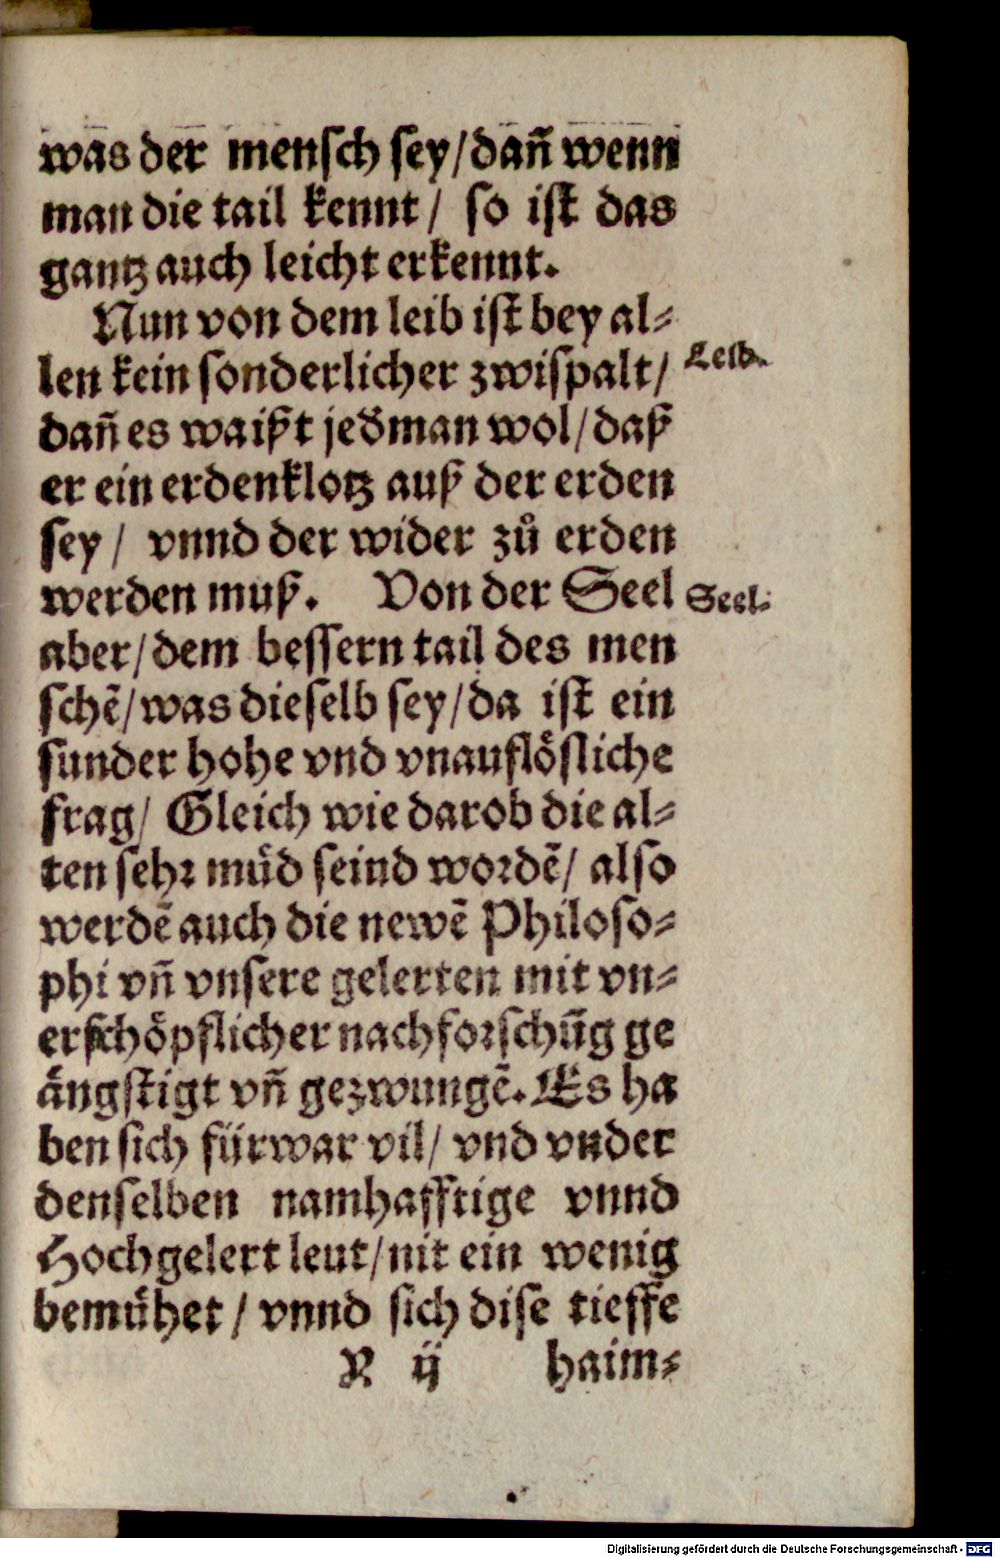 was der mensch sey/dañ wenn
man die tail kennt/ so ist das
gantz auch leicht erkennt.
Nun von dem leib ist bey al⸗
len kein sonderlicher zwispalt/
Leib.
dañ es waißt jedman wol/daß
er ein erdenklotz auß der erden
sey/ vnnd der wider zů erden
werden muß. Von der Seel
Seel.
aber/dem bessern tail des men
schẽ/was dieselb sey/da ist ein
sunder hohe vnd vnauflößliche
frag/ Gleich wie darob die al⸗
ten sehr müd seind wordẽ/ also
werdẽ auch die newẽ Philoso⸗
phi vñ vnsere gelerten mit vn⸗
erschöpflicher nachforschũg ge
ängstigt vñ gezwungẽ. Es ha
ben sich fürwar vil/ vnd vnder
denselben namhafftige vnnd
Hochgelert leut/nit ein wenig
bemühet/ vnnd sich dise tieffe
R ij haim⸗
Digitalisierung gefördert durch die Deutsche Forschungsgemeinschaft - DFG